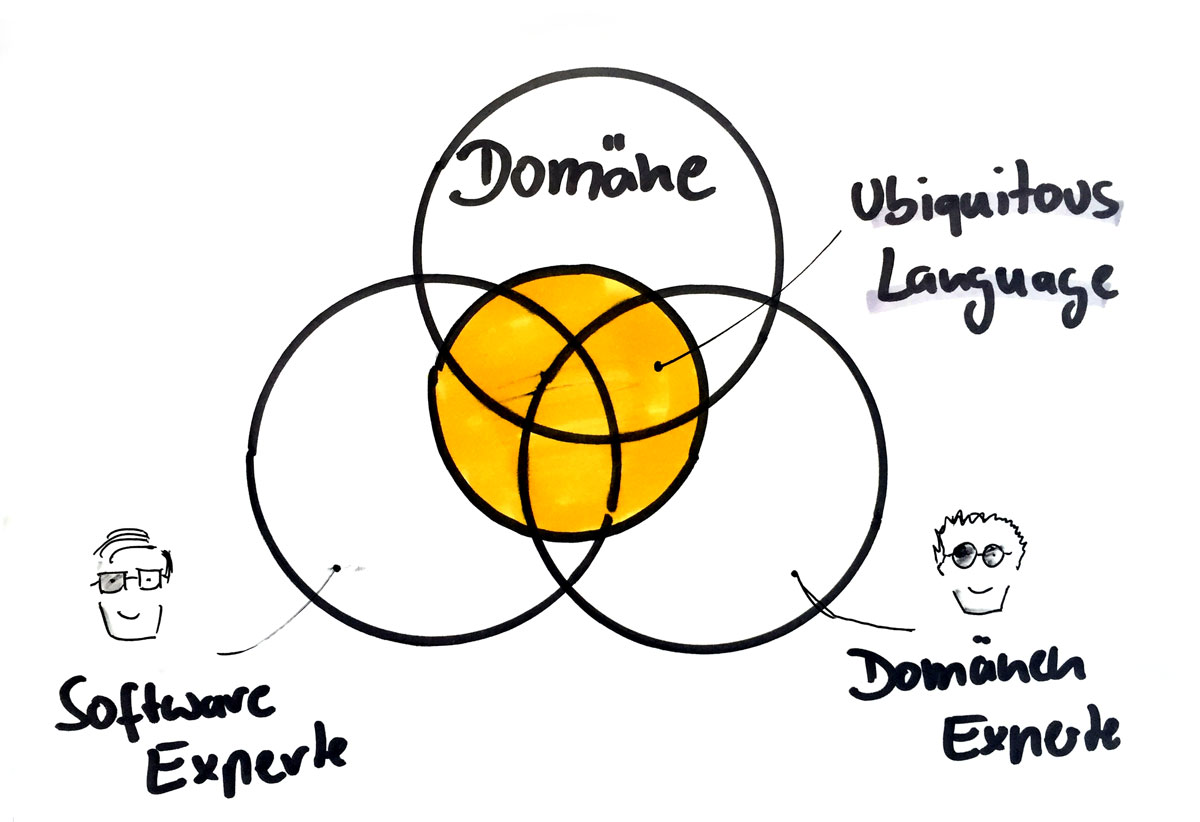 Domäne
Ubiquitous
Language
Software
Experte
Domänen
Experte